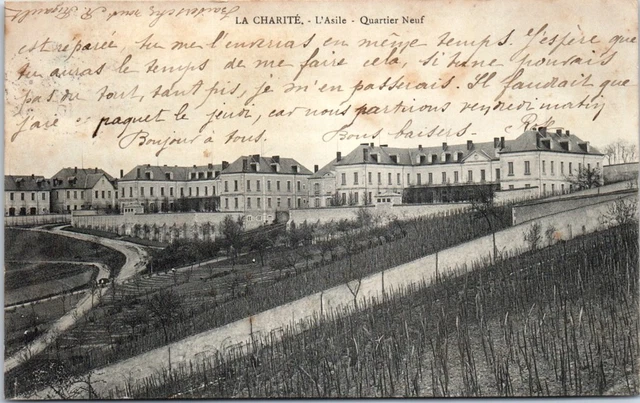 LA CHARITÉ. - L'Asile - Quartier Neuf
est reparée, tu me l'enverras en même temps. J'espère que
tu auras le temps de me faire cela, si tu ne pouvais
pas du tout, tant pis, je m'en passerais. Il faudrait que
j'aie le paquet le jeudi, car nous partirons vendredi matin
Bonjour à tous. Bons baisers.